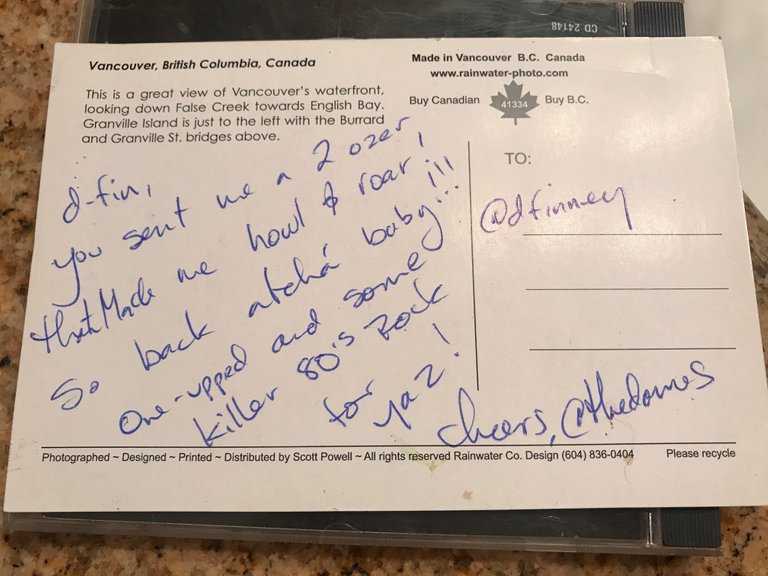 CD 24148
Vancouver, British Columbia, Canada
This is a great view of Vancouver's waterfront,
looking down False Creek towards English Bay.
Granville Island is just to the left with the Burrard
and Granville St. bridges above.
Made in Vancouver B.C. Canada
www.rainwater-photo.com
Buy Canadian 41334 Buy B.C.
TO:
@dfinney
d-fin,
you sent me a 2 ozer,
that Made me howl & roar,
So back atcha' baby!!!
one-upped and some
killer 80's Rock
for yaz!
cheers, @thedomes
Photographed ~ Designed ~ Printed ~ Distributed by Scott Powell ~ All rights reserved Rainwater Co. Design (604) 836-0404 Please recycle